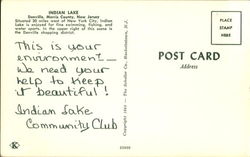 INDIAN LAKE
Denville, Morris County, New Jersey
Situated 30 miles west of New York City, Indian
Lake is enjoyed for fine swimming, fishing, and
water sports. In the upper right of this scene is
the Denville shopping district.
This is your
environment —
We need your
help to keep
it beautiful!
Indian Lake
Community Club
K
POST CARD
Address
PLACE
STAMP
HERE